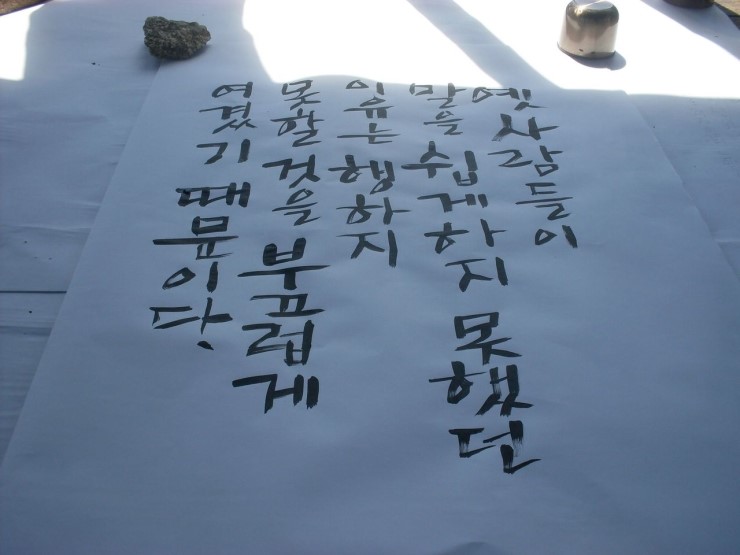 옛사람들이
말을 쉽게하지 못했던
이유는 행하지
못할 것을 부끄럽게
여겼기 때문이다.